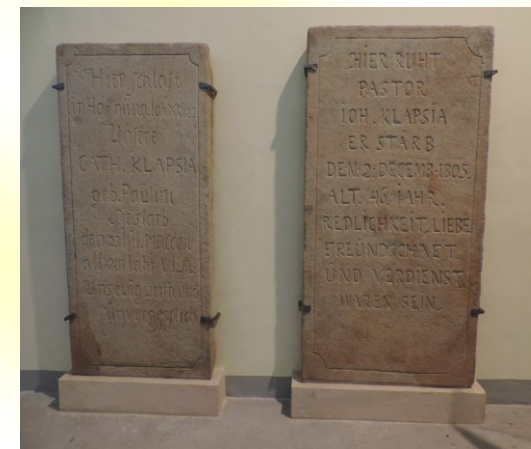 Hier schläft
in Hofnung
Unsre
CATH. KLAPSIA.
geb. Paulini
Sie starb
alt XXII Jahr
Uns ewig werth und
Unvergesslich
HIER RUHT
PASTOR
IOH. KLAPSIA
ER STARB
DEN. 2. DECEMB. 1805.
ALT. 46 JAHR.
REDLICHKEIT, LIEBE
FREÜNDSCHAFT
UND VERDIENST,
WAREN SEIN.